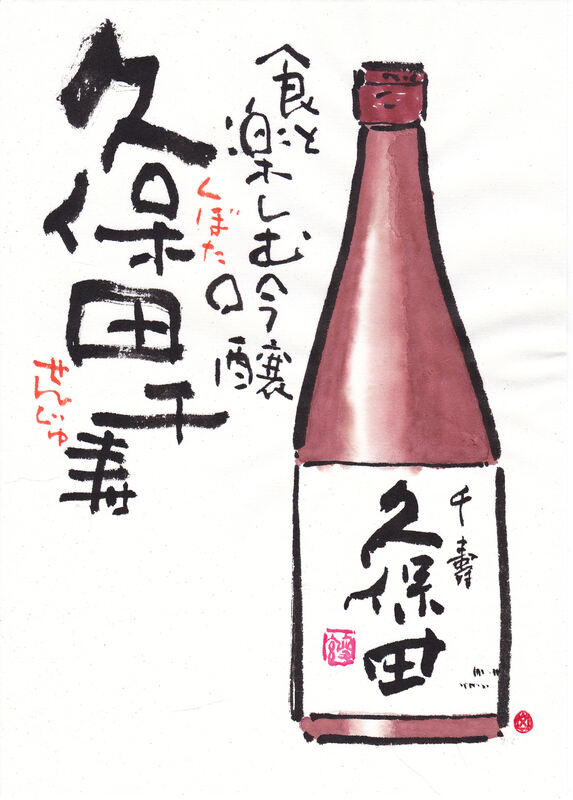 食と楽しむ吟醸
久保田
くぼた
千寿
せんじゅ
千壽
久保田